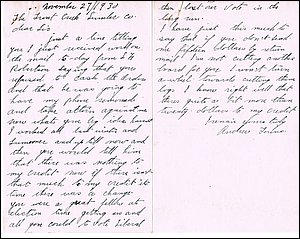 November 27/1930
The Trent Cash Lumber Co
dear Sir
Just a line letting
you I just received word on
the mail to-day from J.H
Robertson saying that you
refused to cash the orders
and that he was going to
have my phone removed
and take action against me
now whats you big idea havent
I worked all last winter and
summer and up till now and
then you would tell him
that there was nothing to
my credit now if there isnt
that much to my credit its
time there was a change
you were a great fellow at
election time getting us and
all you could to vote Liberal
then lost our vote in the
long run.
I have just this much to
say that if you don't send
me fifteen dollars by return
mail I'm not cutting another
board for you I wont turn
a wheel towards cutting them
logs I know right well that
there quite a bit more than
twenty dollars to my credit
I remain yours truly
Andrew